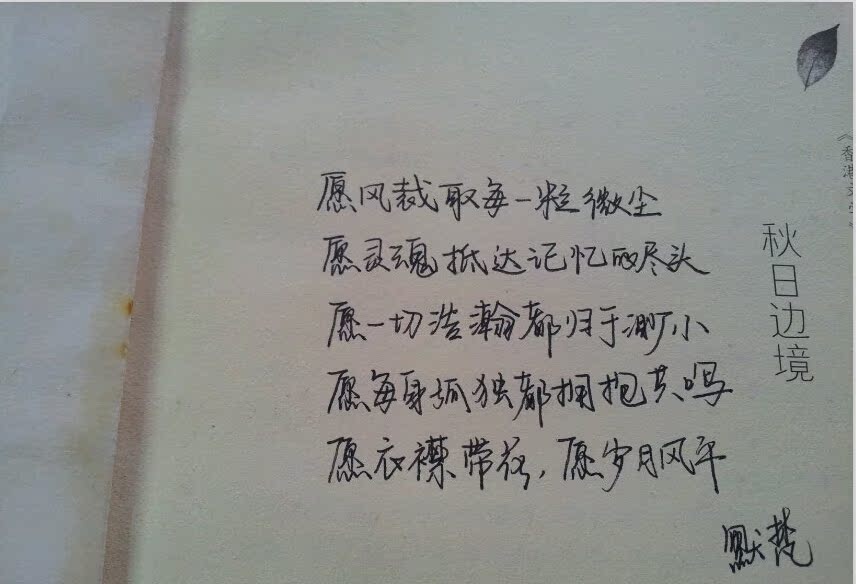 愿风裁取每一粒微尘
愿灵魂抵达记忆的尽头
愿一切浩瀚都归于渺小
愿每身孤独都拥抱共鸣
愿衣襟带花，愿岁月风平
默梵
秋日边境
《香港文学》